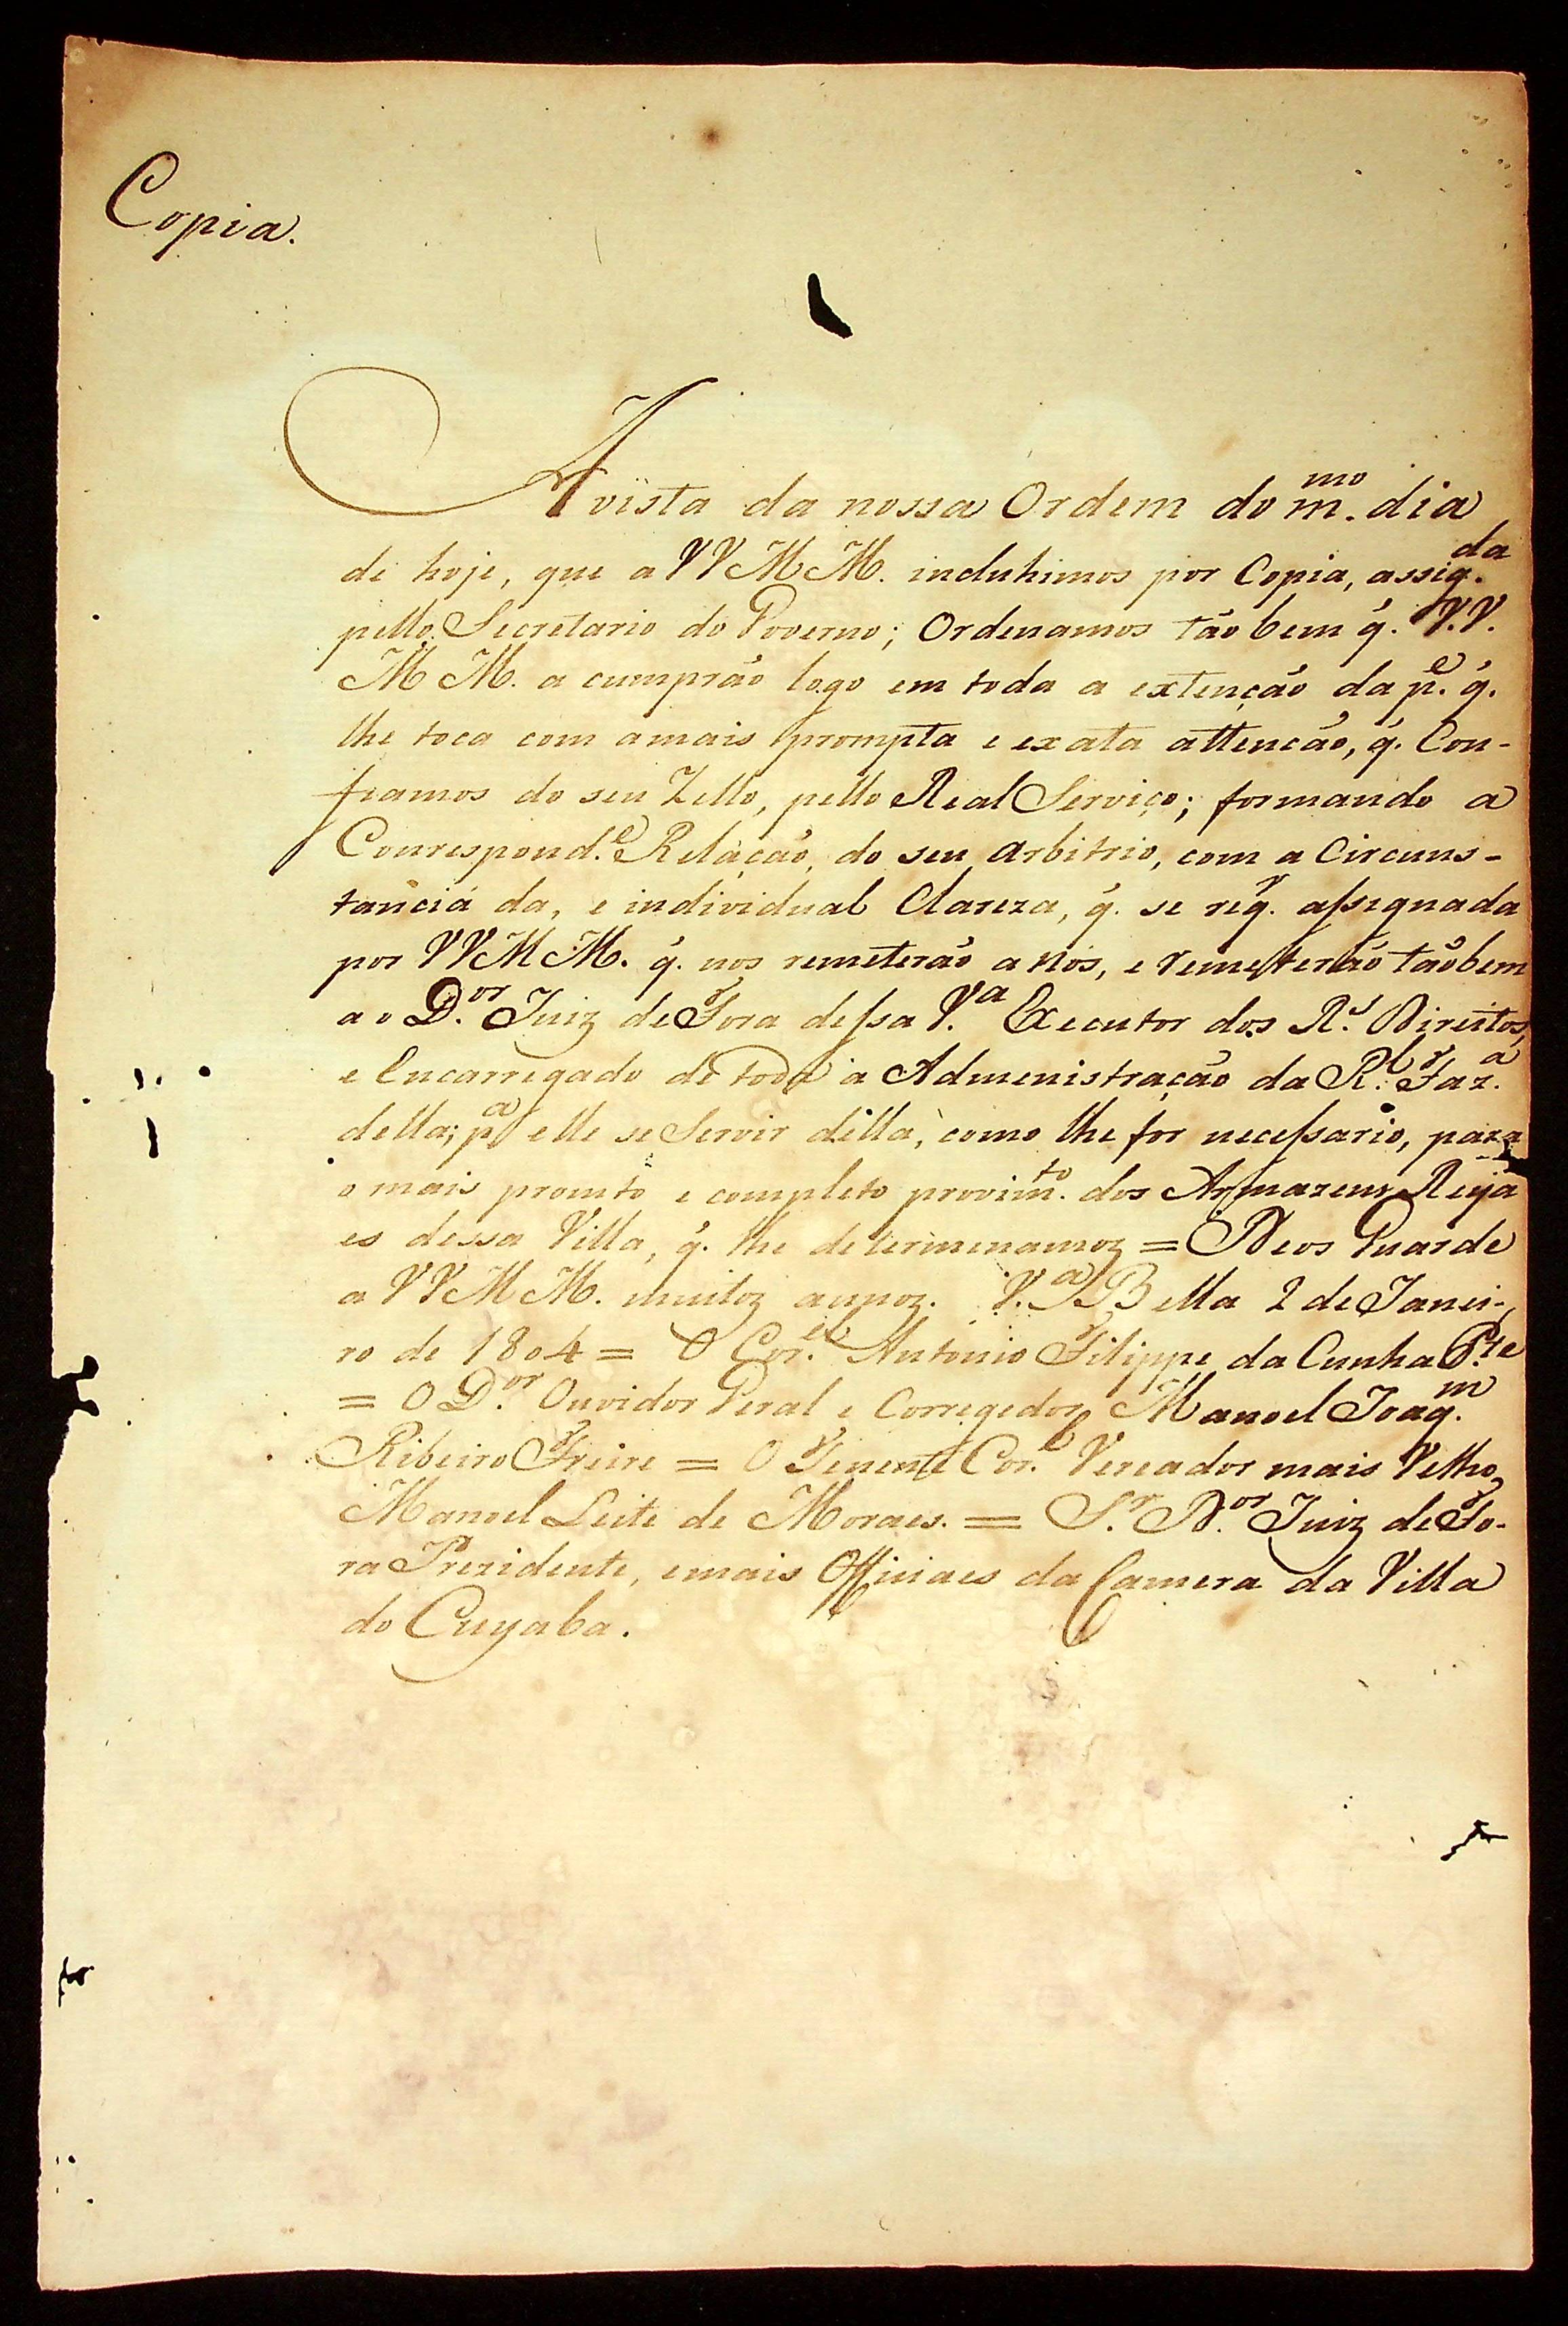 Copia.
A vista da nossa Ordem do m.mo dia
de hoje, que a VVMM. incluhimos por Copia, assig.da
pello Secretario do Governo; Ordenamos tão bem q̃. V.V.
MM. a cumprão logo em toda a extenção da p.e q̃.
lhe toca com a mais prompta e exata attencão, q̃. Con-
fiamos do seu Zello, pello Real Serviço; formando a
Correspond.e Relação, do seu Arbitrio, com a Circuns-
tanciá da, e individual Clareza, q̃. se req.r assignada
por VVMM. q̃. nos remeterão a Nós, e remeterão tãobem
ao D.or Juiz de Fora dessa V.a Executor dos R.s Direitos,
e Encarregado de toda a Admenistração da R.l Faz.a
della; p.a elle se Servir della, como lhe for necessario, para
o mais promto e completo provim.to dos Armazens Reya
es dessa Villa, q̃. lhe determenamoz = Deos Guarde
a VVMM. muitoz annoz. V.a Bella 2 de Janei-
ro de 1804 = O Cor.el Antonio Filippe da Cunha P.te
= O D.or Ouvidor Geral e Corregedor Manoel Joaq.m
Ribeiro Freire = O Tenente Cor.l Vereador mais Velho
Manoel Leite de Moraes. = S.r D.or Juiz de Fo-
ra Prezidente, e mais Officiaes da Camera da Villa
do Cuyaba.